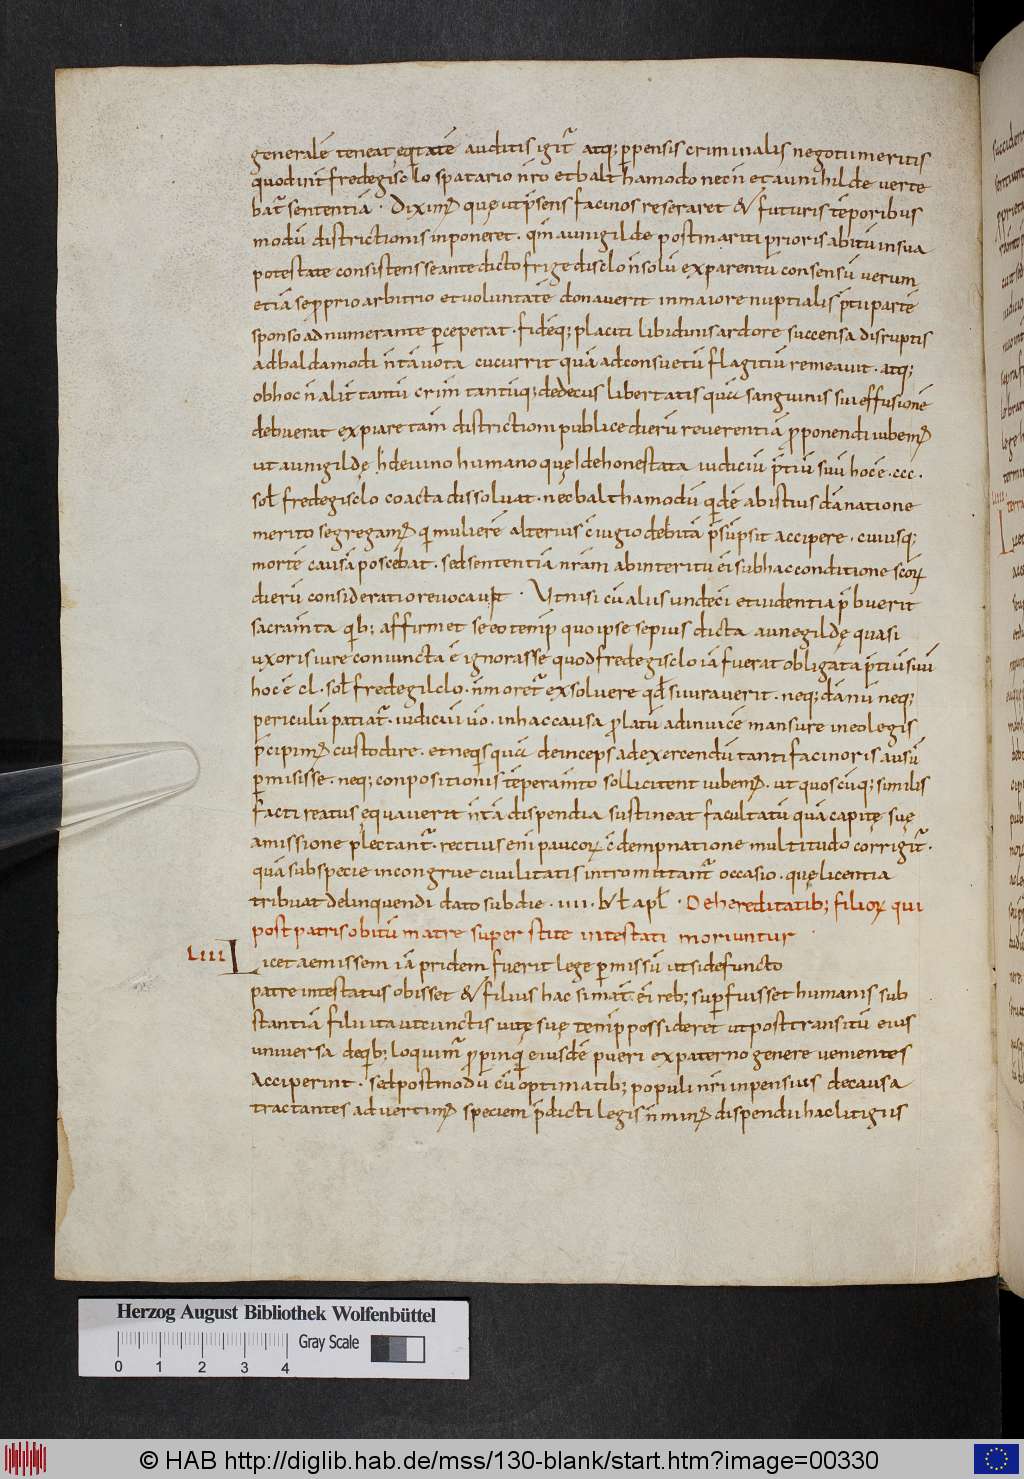 generalē teneat ęq̄tatē auditis igit̄ atq; ꝑpensis criminalis negotii meritis
quod int̄ fredegisclo spatario n̄ro et balthamodo nec n̄ et aunihilde verte
bat̄ sententiā · Diximꝰ quę ut p̄sens facinos reseraret & futuris tēporibus
modū districtionis inponeret · qm̄ aunigilde post mariti prioris abitū in sua
potestate consistens se antedicto frigedisclo n̄ solū ex parentū consensū verum
etiā se ꝓprio arbitrio et voluntatē donaverit in maiore nuptialis p̄tii partē
sponso adnumerante ꝑceperat · fidēq; placiti libidinis ardore succensa disruptis
ad baldamodi n̄ tā vota cucurrit quā ad consuetū flagitiū remeavit · atq;
ob hoc n̄ alit̄ tantū crim̄ tantūq; dedecus libertatis quā sanguinis sui effusionē
debuerat expiare tam̄ districtioni publice dierū reverentiā p̄ponendi iubemꝰ
ut aunigildę
dehonestata iudiciū p̄tiū suū hoc ē · ccc ·
sol̄ fredegisclo coacta dissolvat · nec balthamodū q̄dē ab istius dānatione
merito segregamꝰ qi mulierē alterius c̄iugio debitā p̄sūpsit accipere · cuiusq;
morte causā poscebat · sed sententiā n̄rām ab interitu ei sub hac conditione scorꝝ
dierū consideratio revocavit · Ut nisi cū aliis undeci et videntia p̄buerit
sacram̄ta q̄b; affirmet se eo temꝑ quo ipse sepius dicta aunegildę quasi
uxoris iure coniuncta ē ignorasse quod fredegisclo iā fuerat obligata p̄tiū suū
hoc ē cl · sol̄ fredegilclo · n̄ moret̄ exsolvere qd̄ si iuraverit · neq; dānū neq;
periculū patiat̄ · iudiciū v̄o · in hac causa ꝓlatū ad invicē mansure in eo legis
p̄cipimꝰ custodire · et ne q̄squā deinceps ad exercendū tanti facinoris ausū
ꝑmisisse · neq; conpositionis tēperam̄to sollicitent iubemꝰ · ut quoscūq; similis
facti reatus ęquaverit n̄ tā dispendia sustineat facultatū quā capitę suę
amissione plectant̄ · rectius enī paucorꝝ c̄dempnatione multitudo corrigit̄ ·
quā sub specie incongrue civilitatis intromittant̄ occasio · quę licentia
tribuat delinquendi dato sub die · iiii · id̄ apl̄ · De hereditatib; filiorꝝ qui
post patris obitū matre superstite intestati moriuntur
LIII Licet aemissem iā pridem fuerit lege ꝑmissū ut si defuncto
patre intestatus obisset & filius hac si mat̄ ei reb; suꝑfuisset humanis sub
stantiā filii ita ut cunctis vitę suę temꝑ possideret ut post transitū eius
universa de q̄b; loquimr̄ ꝓpinq̄ eiusdē pueri ex paterno genere venientes
acciperint · sed postmodū cū optimatib; populi n̄ri inpensius de causa
tractantes advertimꝰ speciem p̄dicti legis n̄ minꝰ dispendii hac litigiis
Herzog August Bibliothek Wolfenbüttel
Gray Scale
0 1 2 3 4
© HAB http://diglib.hab.de/mss/130-blank/start.htm?image=00330